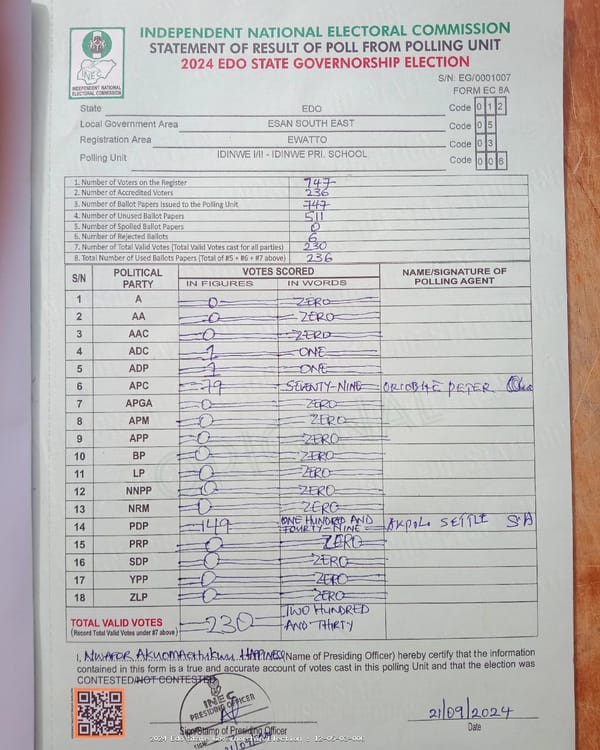 INDEPENDENT NATIONAL ELECTORAL COMMISSION
STATEMENT OF RESULT OF POLL FROM POLLING UNIT
2024 EDO STATE GOVERNORSHIP ELECTION
INEC
INDEPENDENT NATIONAL
ELECTORAL COMMISSION
S/N: EG/0001007
FORM EC 8A
State EDO Code 0 1 2
Local Government Area ESAN SOUTH EAST Code 0 5
Registration Area EWATTO Code 0 3
Polling Unit IDINWE I/II - IDINWE PRI. SCHOOL Code 0 0 6
1. Number of Voters on the Register 747
2. Number of Accredited Voters 236
3. Number of Ballot Papers Issued to the Polling Unit 747
4. Number of Unused Ballot Papers 511
5. Number of Spoiled Ballot Papers 0
6. Number of Rejected Ballots 6
7. Number of Total Valid Votes (Total Valid Votes cast for all parties) 230
8. Total Number of Used Ballots Papers (Total of #5 + #6 + #7 above) 236
S/N POLITICAL PARTY VOTES SCORED NAME/SIGNATURE OF POLLING AGENT
IN FIGURES IN WORDS
1 A 0 ZERO
2 AA 0 ZERO
3 AAC 0 ZERO
4 ADC 1 ONE
5 ADP 1 ONE
6 APC 79 SEVENTY-NINE ORIOBHE PETER
7 APGA 0 ZERO
8 APM 0 ZERO
9 APP 0 ZERO
10 BP 0 ZERO
11 LP 0 ZERO
12 NNPP 0 ZERO
13 NRM 0 ZERO
14 PDP 149 ONE HUNDRED AND FOURTY-NINE AKPOLO SETTLE
15 PRP 0 ZERO
16 SDP 0 ZERO
17 YPP 0 ZERO
18 ZLP 0 ZERO
ORIGINAL
TOTAL VALID VOTES 230 TWO HUNDRED AND THIRTY
(Record Total Valid Votes under #7 above)
I, NWAFOR HAPPINESS (Name of Presiding Officer) hereby certify that the information
contained in this form is a true and accurate account of votes cast in this polling Unit and that the election was
CONTESTED/NOT CONTESTED
INEC
PRESIDING OFFICER
Sign/Stamp of Presiding Officer
21/09/2024
Date